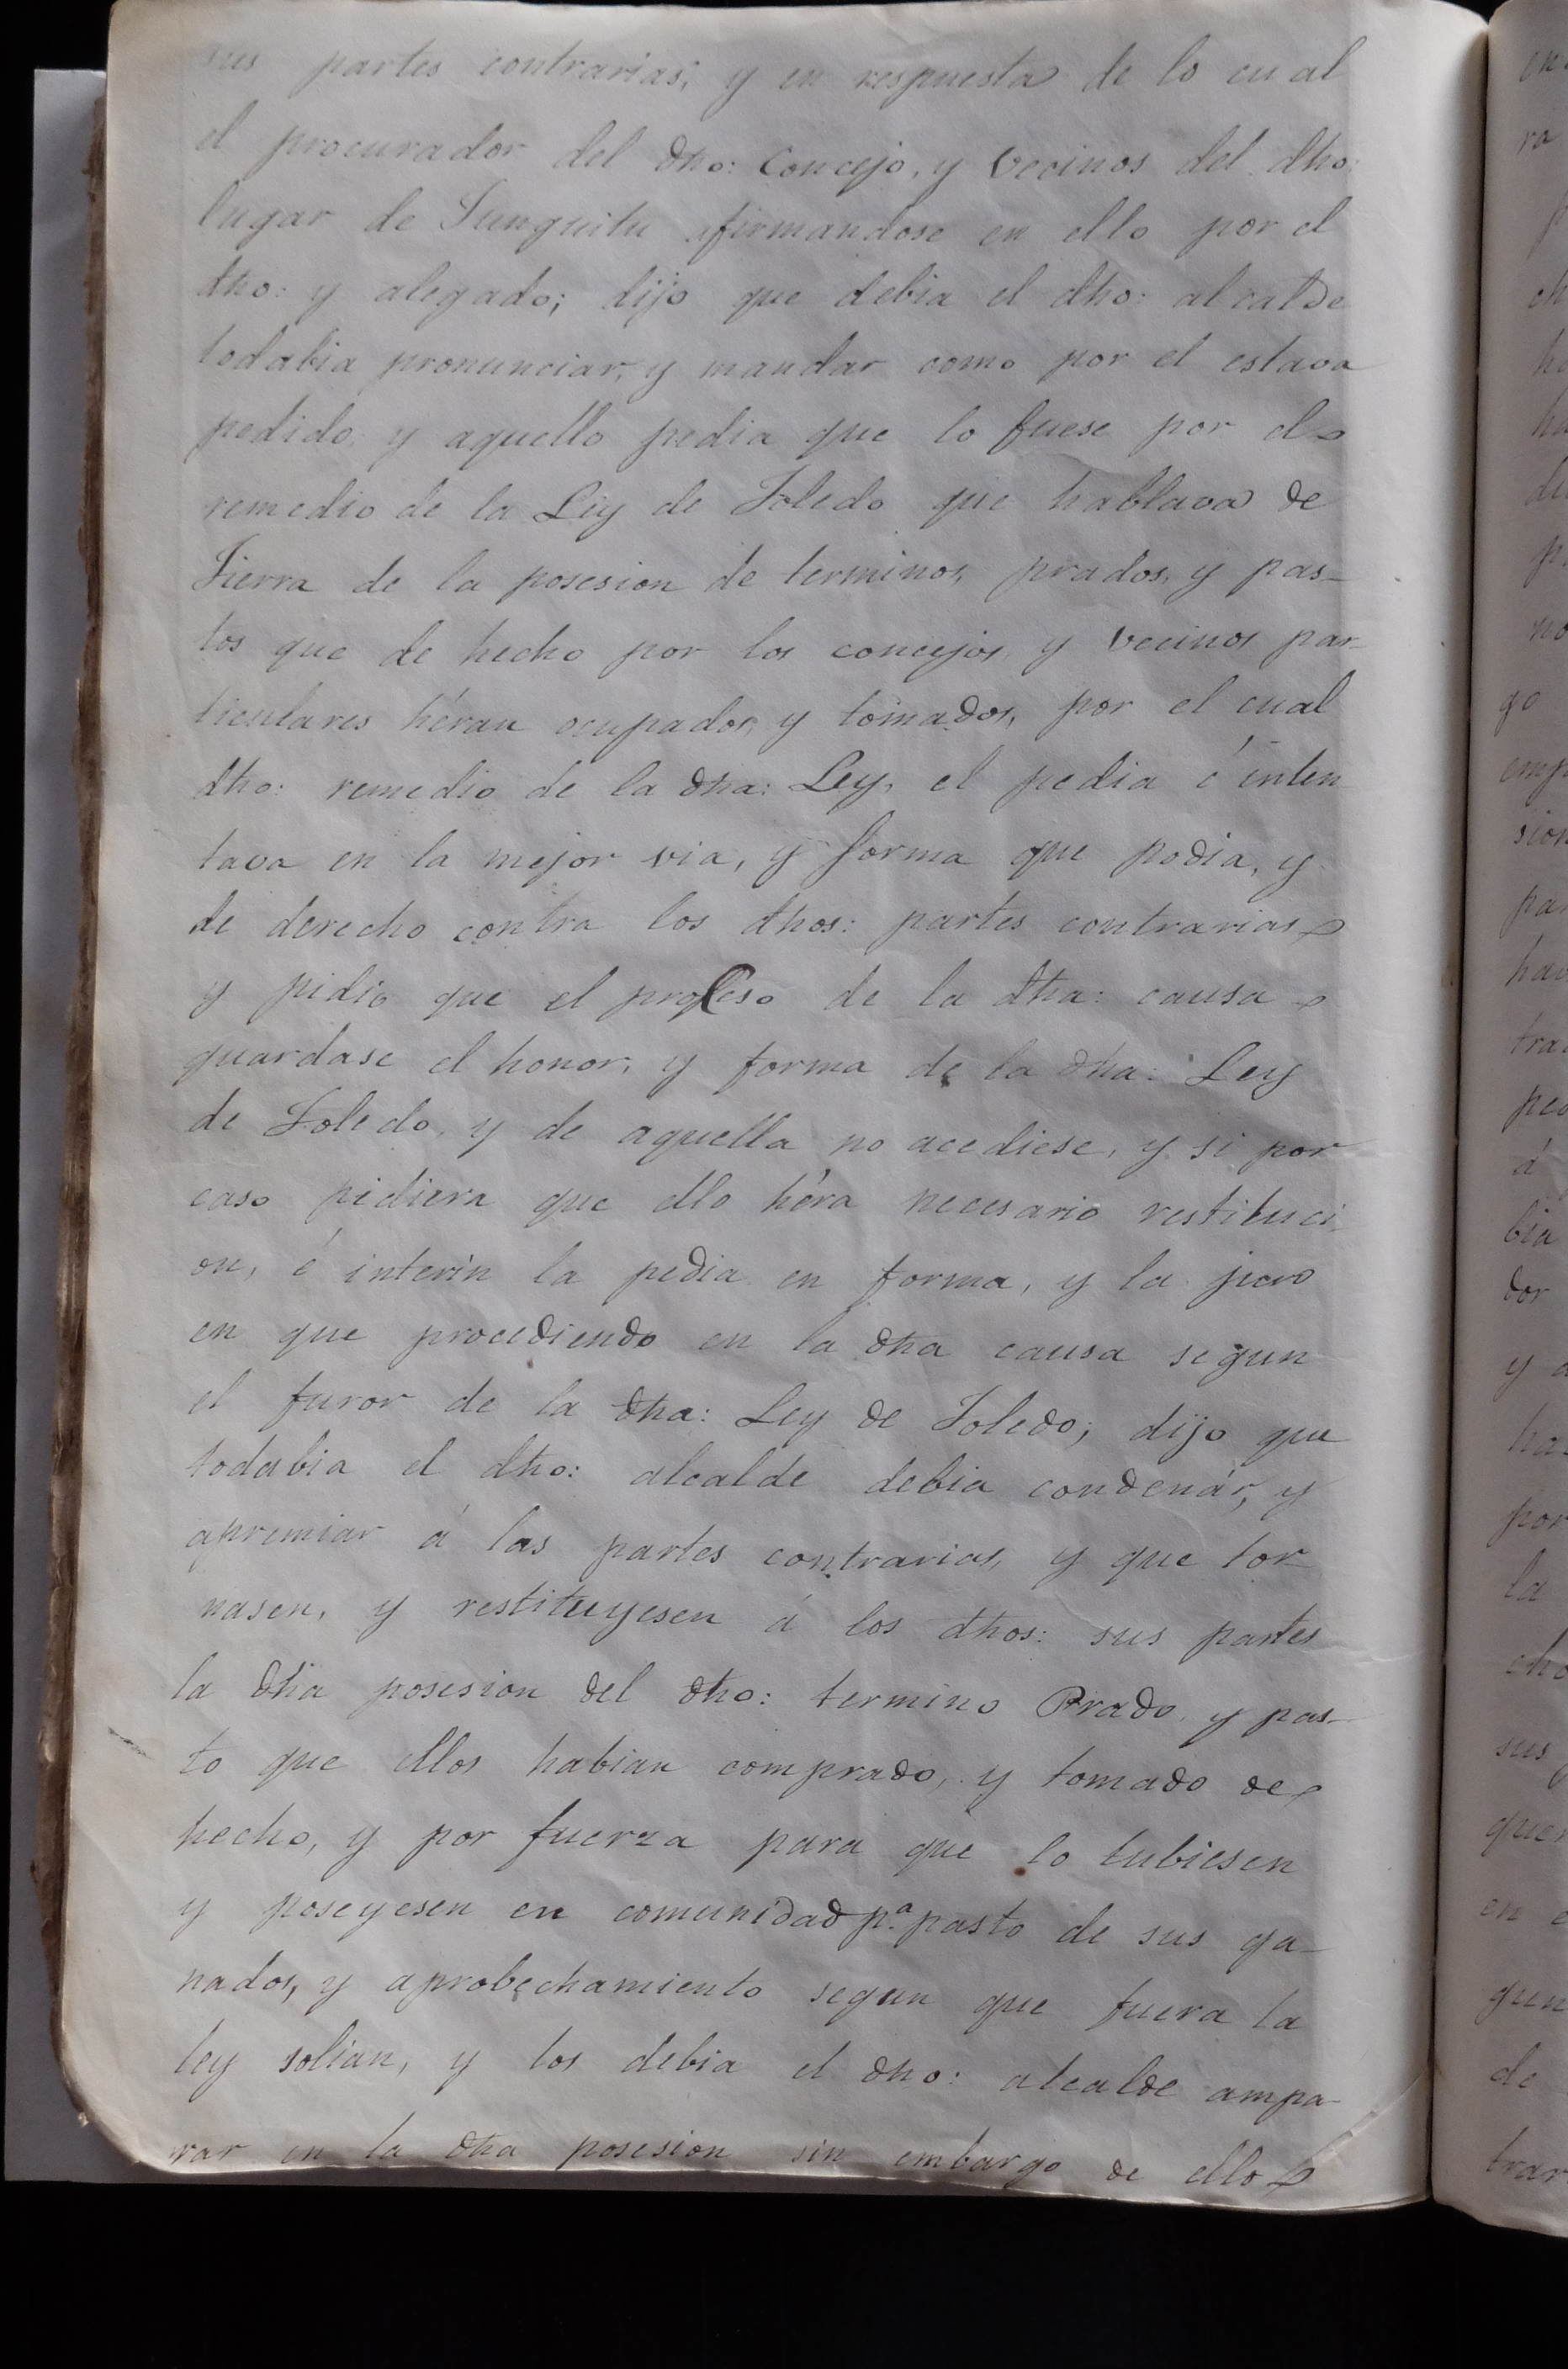 sus partes contrarias; y en respuesta de lo cual
el procurador del dho: Concejo, y Vecinos del dho:
lugar de Junguitu afirmandose en ello por el
dho: y alegado; dijo que debia el dho: alcalde
todabia pronunciar, y mandar como por el estava
pedido, y aquello pedia que lo fuese por el
remedio de la Ley de Toledo que hablava de
Tierra de la posesion de terminos, prados, y pas-
tos que de hecho por los concejos, y Vecinos par-
ticulares héran ocupados, y tomados, por el cual
dho: remedio de la dha: Ley, el pedia é inten
tava en la mejor via, y forma que podia, y
de derecho contra los dhos: partes contrarias
y pidio que el proceso de la dha: causa
guardase el honor, y forma de la dha: Ley
de Toledo, y de aquella no acediese, y si por
caso pidiera que ello héra necesario restituci-
on, é interin la pedia en forma, y la juro
en que procediendo en la dha causa segun
el furor de la dha: Ley de Toledo; dijo que
todabia el dho: alcalde debia condenár, y
apremiar á las partes contrarias, y que tor-
nasen, y restituyesen á los dhos: sus partes
la dha posesion del dho: termino Prado, y pas-
to que ellos habian comprado, y tomado de
hecho, y por fuerza para que lo tubiesen
y poseyesen en comunidad p.ª pasto de sus ga-
nados, y aprobechamiento segun que fuera la
ley solian, y los debia el dho: alcalde ampa-
rar en la dha posesion sin embargo de ello